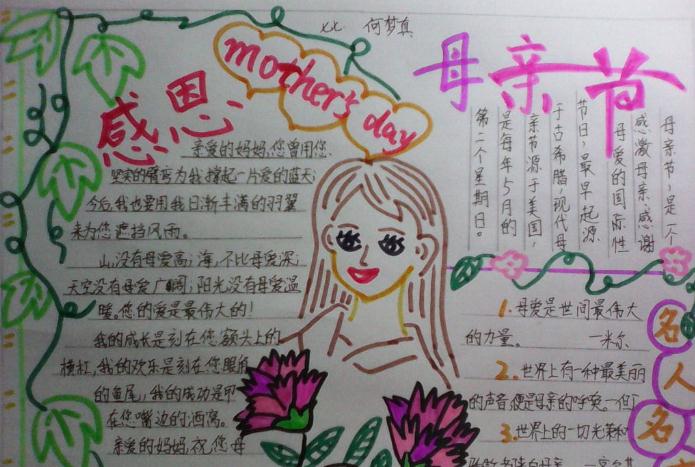 七七 何梦真
mother's day
感恩
亲爱的妈妈，您曾用您
坚实的臂弯为我撑起一片爱的蓝天；
今后，我也要用我日渐丰满的羽翼
来为您遮挡风雨。
山，没有母爱高；海，不比母爱深；
天空没有母爱广阔；阳光没有母爱温
暖。您的爱是最伟大的！
我的成长是刻在您额头上的
横杠，我的欢乐是刻在您眼角
的鱼尾，我的成功是
在您嘴边的酒窝。
亲爱的妈妈，祝您母
母亲节
母亲节，是一个
感激母亲，感谢
母爱的国际性
节日，最早起源
于古希腊，现代母
亲节源于美国，
是每年5月的
第二个星期日。
1.母爱是世间最伟大
的力量。 —米尔
2.世界上有一种最美丽
的声音，便是母亲的呼唤。—但丁
3.世界上的一切光荣和
名人名